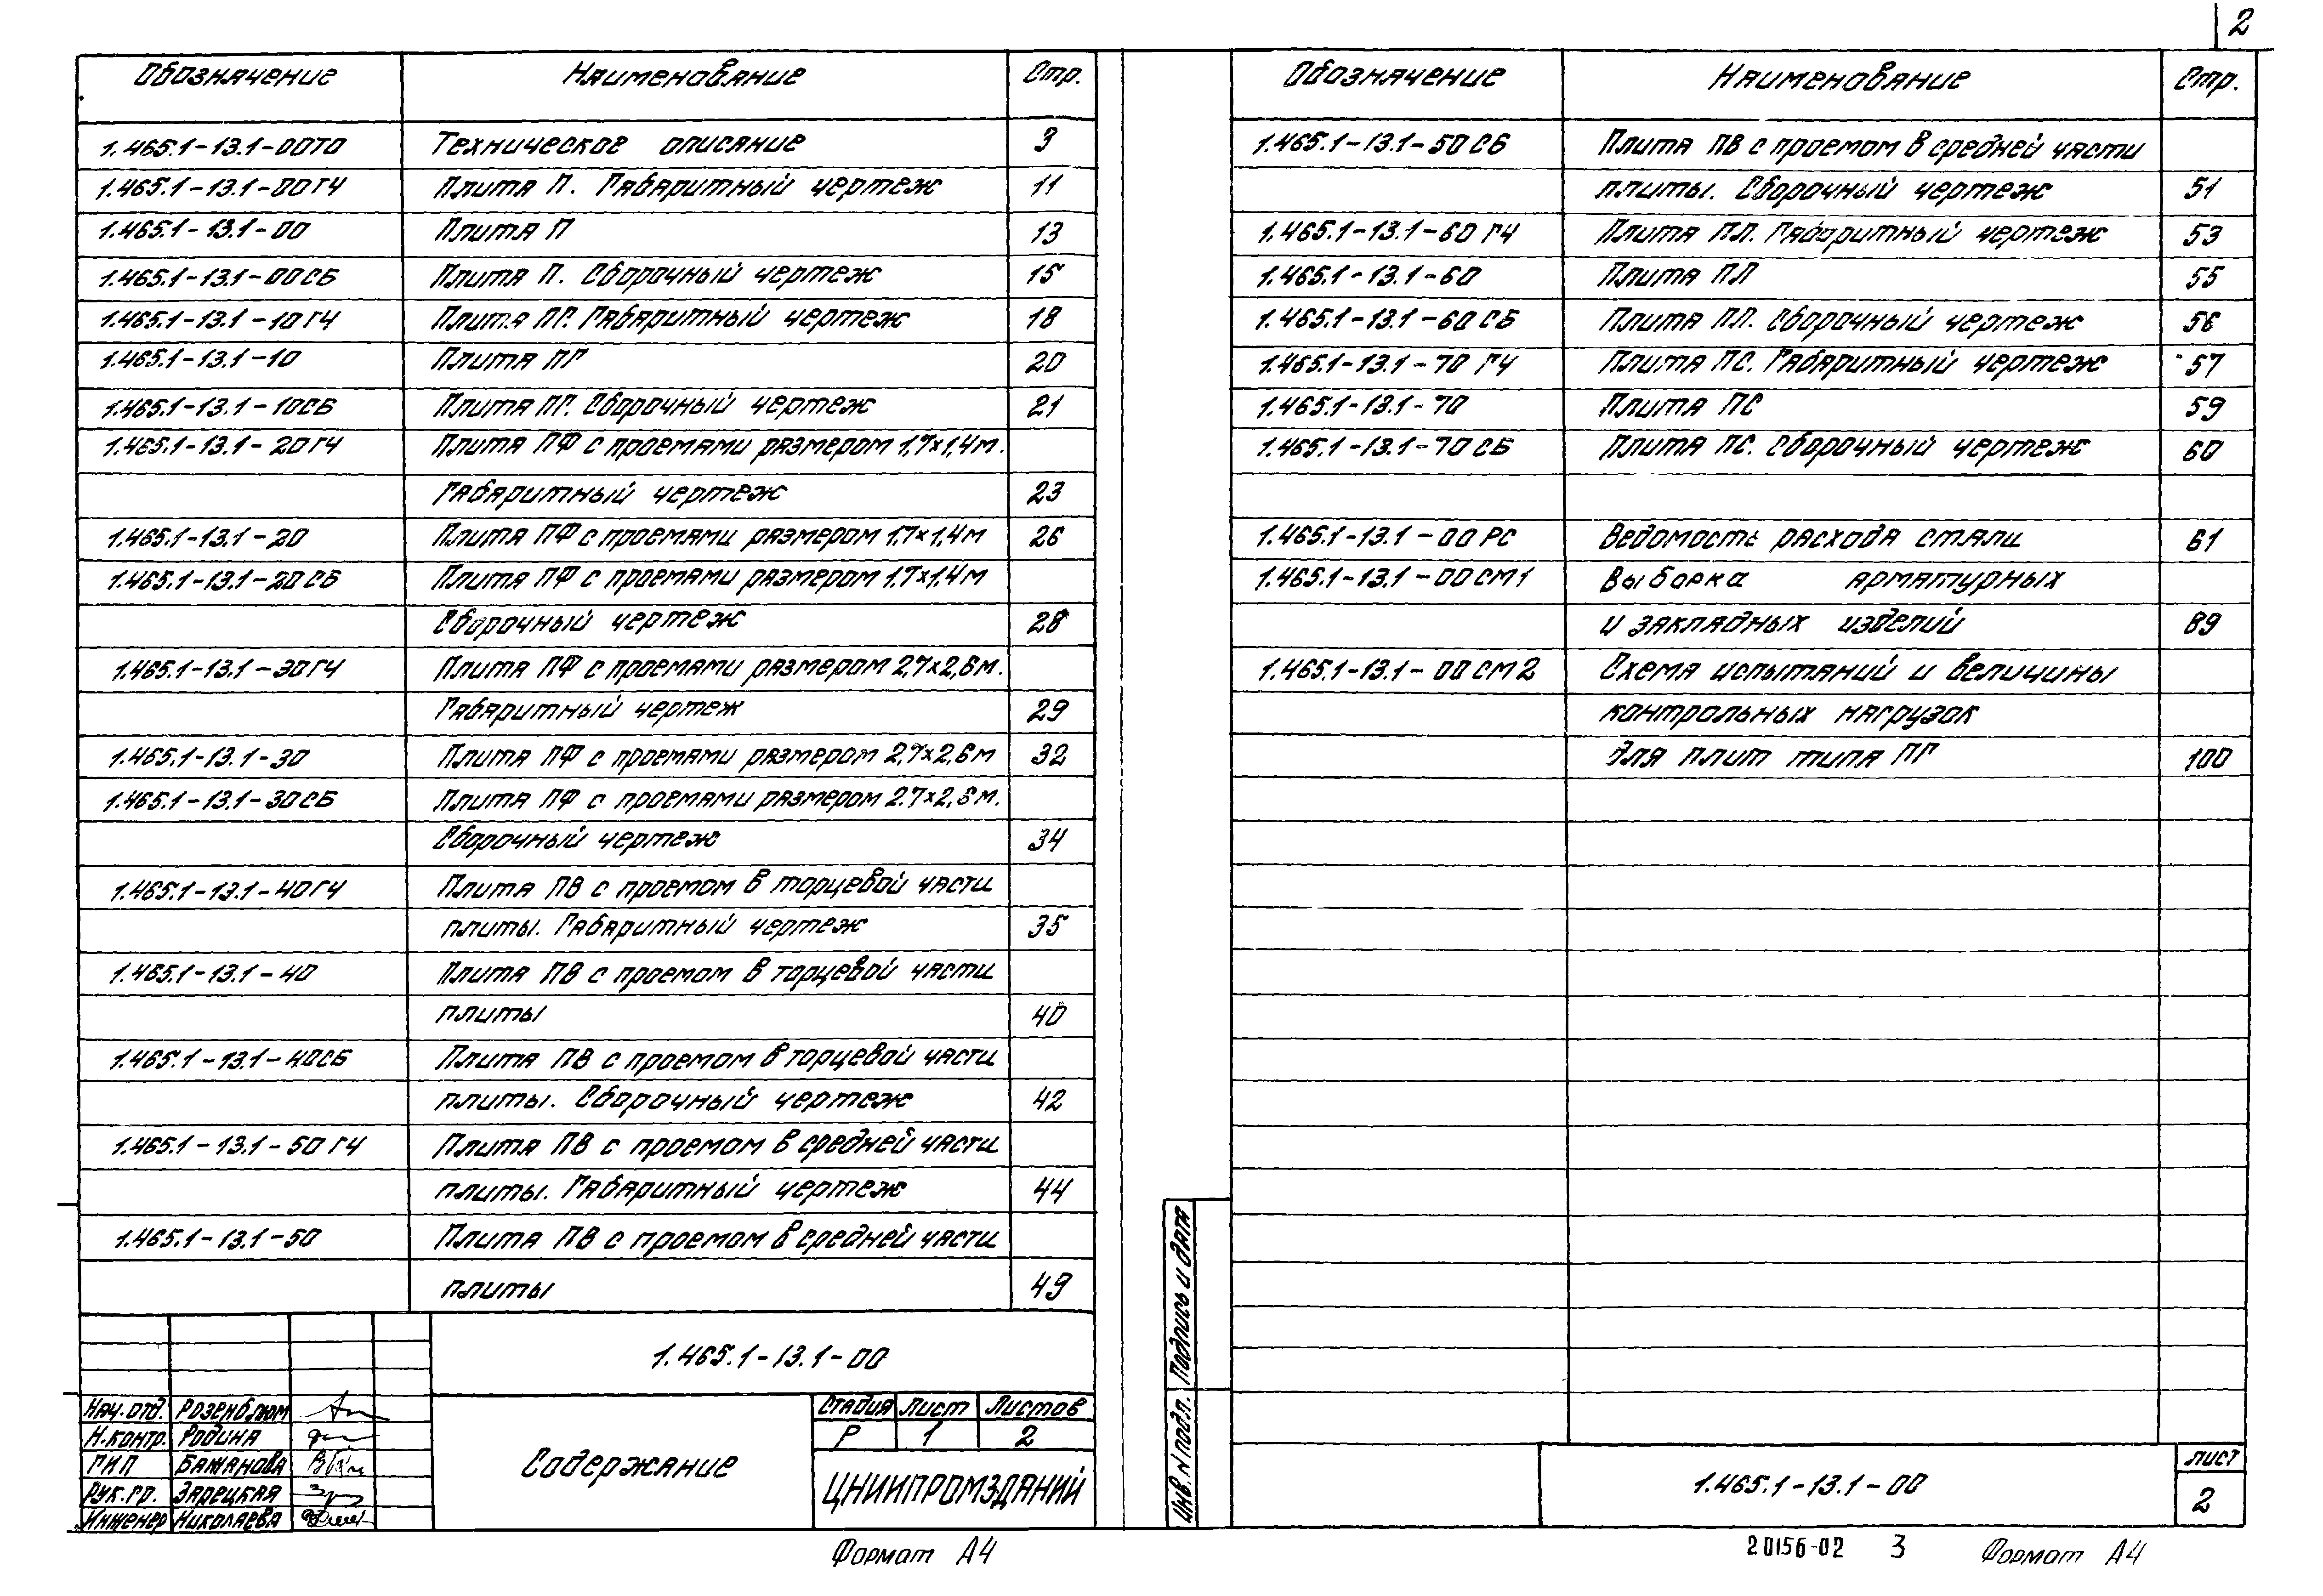 2
Обозначение Наименование Стр.
1.465.1-13.1-00ТО Техническое описание 3
1.465.1-13.1-00ГЧ Плита П. Габаритный чертеж 11
1.465.1-13.1-00 Плита П 13
1.465.1-13.1-00СБ Плита П. Сборочный чертеж 15
1.465.1-13.1-10ГЧ Плита ПГ. Габаритный чертеж 18
1.465.1-13.1-10 Плита ПГ 20
1.465.1-13.1-10СБ Плита ПГ. Сборочный чертеж 21
1.465.1-13.1-20ГЧ Плита ПФ с проемами размером 1,7×1,4м.
Габаритный чертеж 23
1.465.1-13.1-20 Плита ПФ с проемами размером 1.7×1,4м 26
1.465.1-13.1-20СБ Плита ПФ с проемами размером 1.7×1.4м
Сборочный чертеж 28
1.465.1-13.1-30ГЧ Плита ПФ с проемами размером 2,7×2,6м.
Габаритный чертеж 29
1.465.1-13.1-30 Плита ПФ с проемами размером 2,7×2,6м 32
1.465.1-13.1-30СБ Плита ПФ с проемами размером 2.7×2,6м.
Сборочный чертеж 34
1.465.1-13.1-40ГЧ Плита ПВ с проемом в торцевой части
плиты. Габаритный чертеж 35
1.465.1-13.1-40 Плита ПВ с проемом в торцевой части
плиты 40
1.465.1-13.1-40СБ Плита ПВ с проемом в торцевой части
плиты. Сборочный чертеж 42
1.465.1-13.1-50ГЧ Плита ПВ с проемом в средней части
плиты. Габаритный чертеж 44
1.465.1-13.1-50 Плита ПВ с проемом в средней части
плиты 49
1.465.1-13.1-00
Нач.отд. Розенблюм
Н.контр. Родина
ГИП Бажанова
Рук.гр. Зарецкая
Инженер Николаева
Содержание
Стадия Лист Листов
Р 1 2
ЦНИИПРОМЗДАНИЙ
Формат А4
Обозначение Наименование Стр.
1.465.1-13.1-50СБ Плита ПВ с проемом в средней части
плиты. Сборочный чертеж 51
1.465.1-13.1-60ГЧ Плита ПЛ. Габаритный чертеж 53
1.465.1-13.1-60 Плита ПЛ 55
1.465.1-13.1-60СБ Плита ПЛ. Сборочный чертеж 56
1.465.1-13.1-70ГЧ Плита ПС. Габаритный чертеж 57
1.465.1-13.1-70 Плита ПС 59
1.465.1-13.1-70СБ Плита ПС. Сборочный чертеж 60
1.465.1-13.1-00РС Ведомость расхода стали 61
1.465.1-13.1-00СМ1 Выборка арматурных
и закладных изделий 89
1.465.1-13.1-00СМ2 Схема испытаний и величины
контрольных нагрузок
для плит типа ПГ 100
Подпись и дата
Инв. N подл.
1.465.1-13.1-00
лист
2
20156-02 3 Формат А4